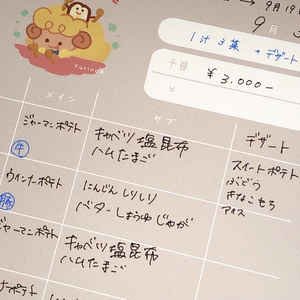 → 9月19
9月
1汁3菜 + デザート
予算
¥3.000-
¥
Yurinoa
メイン
サブ
デザート
ジャーマンポテト
キャベツ塩昆布
ハムたまご
スイートポテト
ぶどう
きなこもち
アイス
牛
ウィンナーポテト
にんじんしりしり
バターしょうゆじゃが
豚
ジャーマンポテト
キャベツ塩昆布
ハムたまご
ーポテト